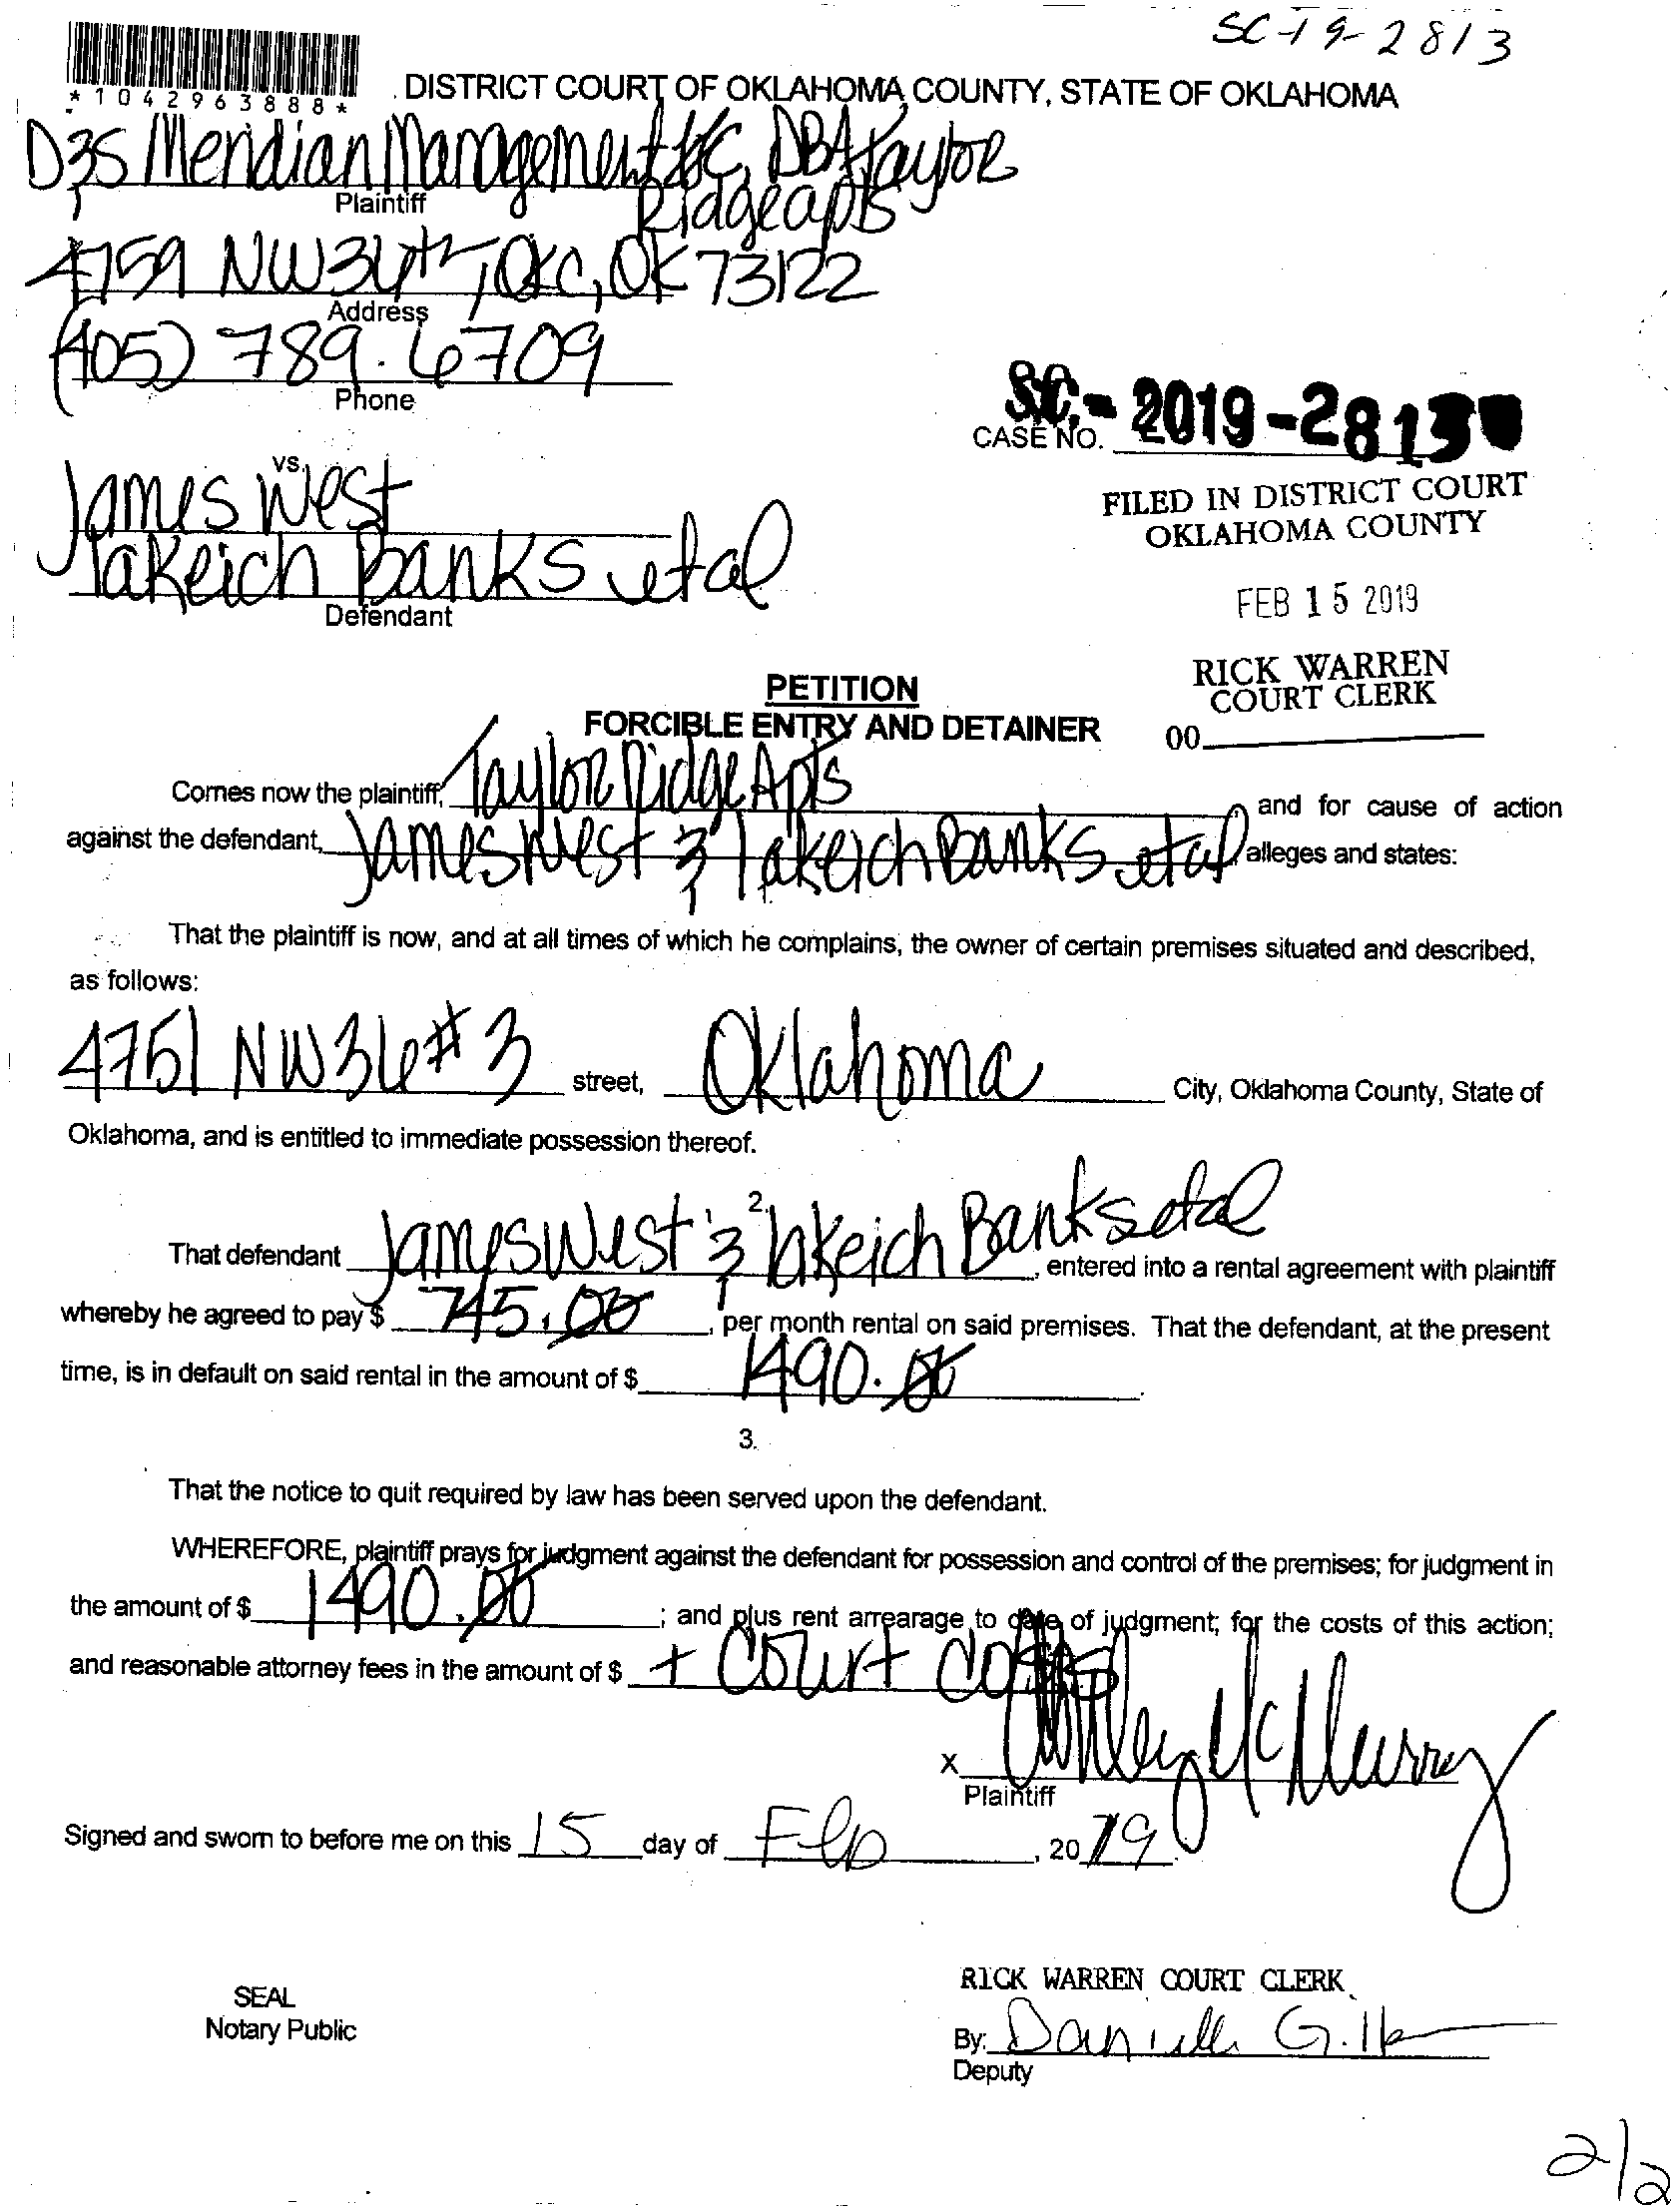 SC-19-2813
*1042963888*
DISTRICT COURT OF OKLAHOMA COUNTY, STATE OF OKLAHOMA
D&S Meridian Management LLC, DBA Taylor
Ridge apts
Plaintiff
4759 NW 36th, OKC, OK 73122
Address
(405) 789.6709
Phone
SC.- 2019-2813
CASE NO.
vs.
James West
FILED IN DISTRICT COURT
OKLAHOMA COUNTY
Takeich Banks etal
Defendant
FEB 15 2019
RICK WARREN
COURT CLERK
PETITION
FORCIBLE ENTRY AND DETAINER
00
Comes now the plaintiff, Taylor Ridge Apts and for cause of action
against the defendant, James West & Takeich Banks etal alleges and states:
That the plaintiff is now, and at all times of which he complains, the owner of certain premises situated and described,
as follows:
4751 NW 36 # 3 street, Oklahoma City, Oklahoma County, State of
Oklahoma, and is entitled to immediate possession thereof.
2.
That defendant James West & Takeich Banks etal, entered into a rental agreement with plaintiff
whereby he agreed to pay $ 745.00, per month rental on said premises. That the defendant, at the present
time, is in default on said rental in the amount of $ 1490.00.
3.
That the notice to quit required by law has been served upon the defendant.
WHEREFORE, plaintiff prays for judgment against the defendant for possession and control of the premises; for judgment in
the amount of $ 1490.00; and plus rent arrearage to date of judgment; for the costs of this action;
and reasonable attorney fees in the amount of $ + Court costs
x Ashley McMurry
Plaintiff
Signed and sworn to before me on this 15 day of Feb, 2019.
RICK WARREN COURT CLERK
SEAL
Notary Public
By: Danielle
Deputy
2/2